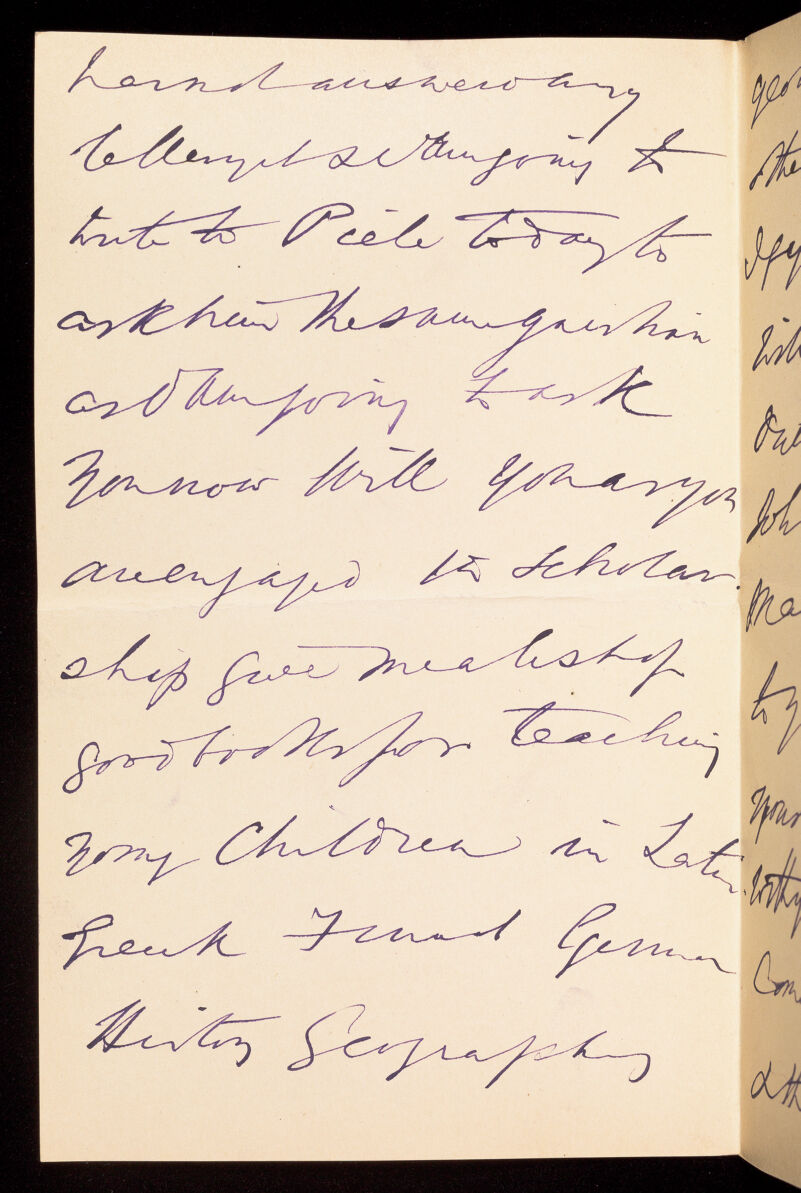 has not answered any
letter yet so I am going to
write to Piele today to
ask him the same question
as I am going to ask
you now Will you as you
are engaged in scholar-
ship give me a list of
good books for teaching
young Children in Latin
Greek French German
History Geography